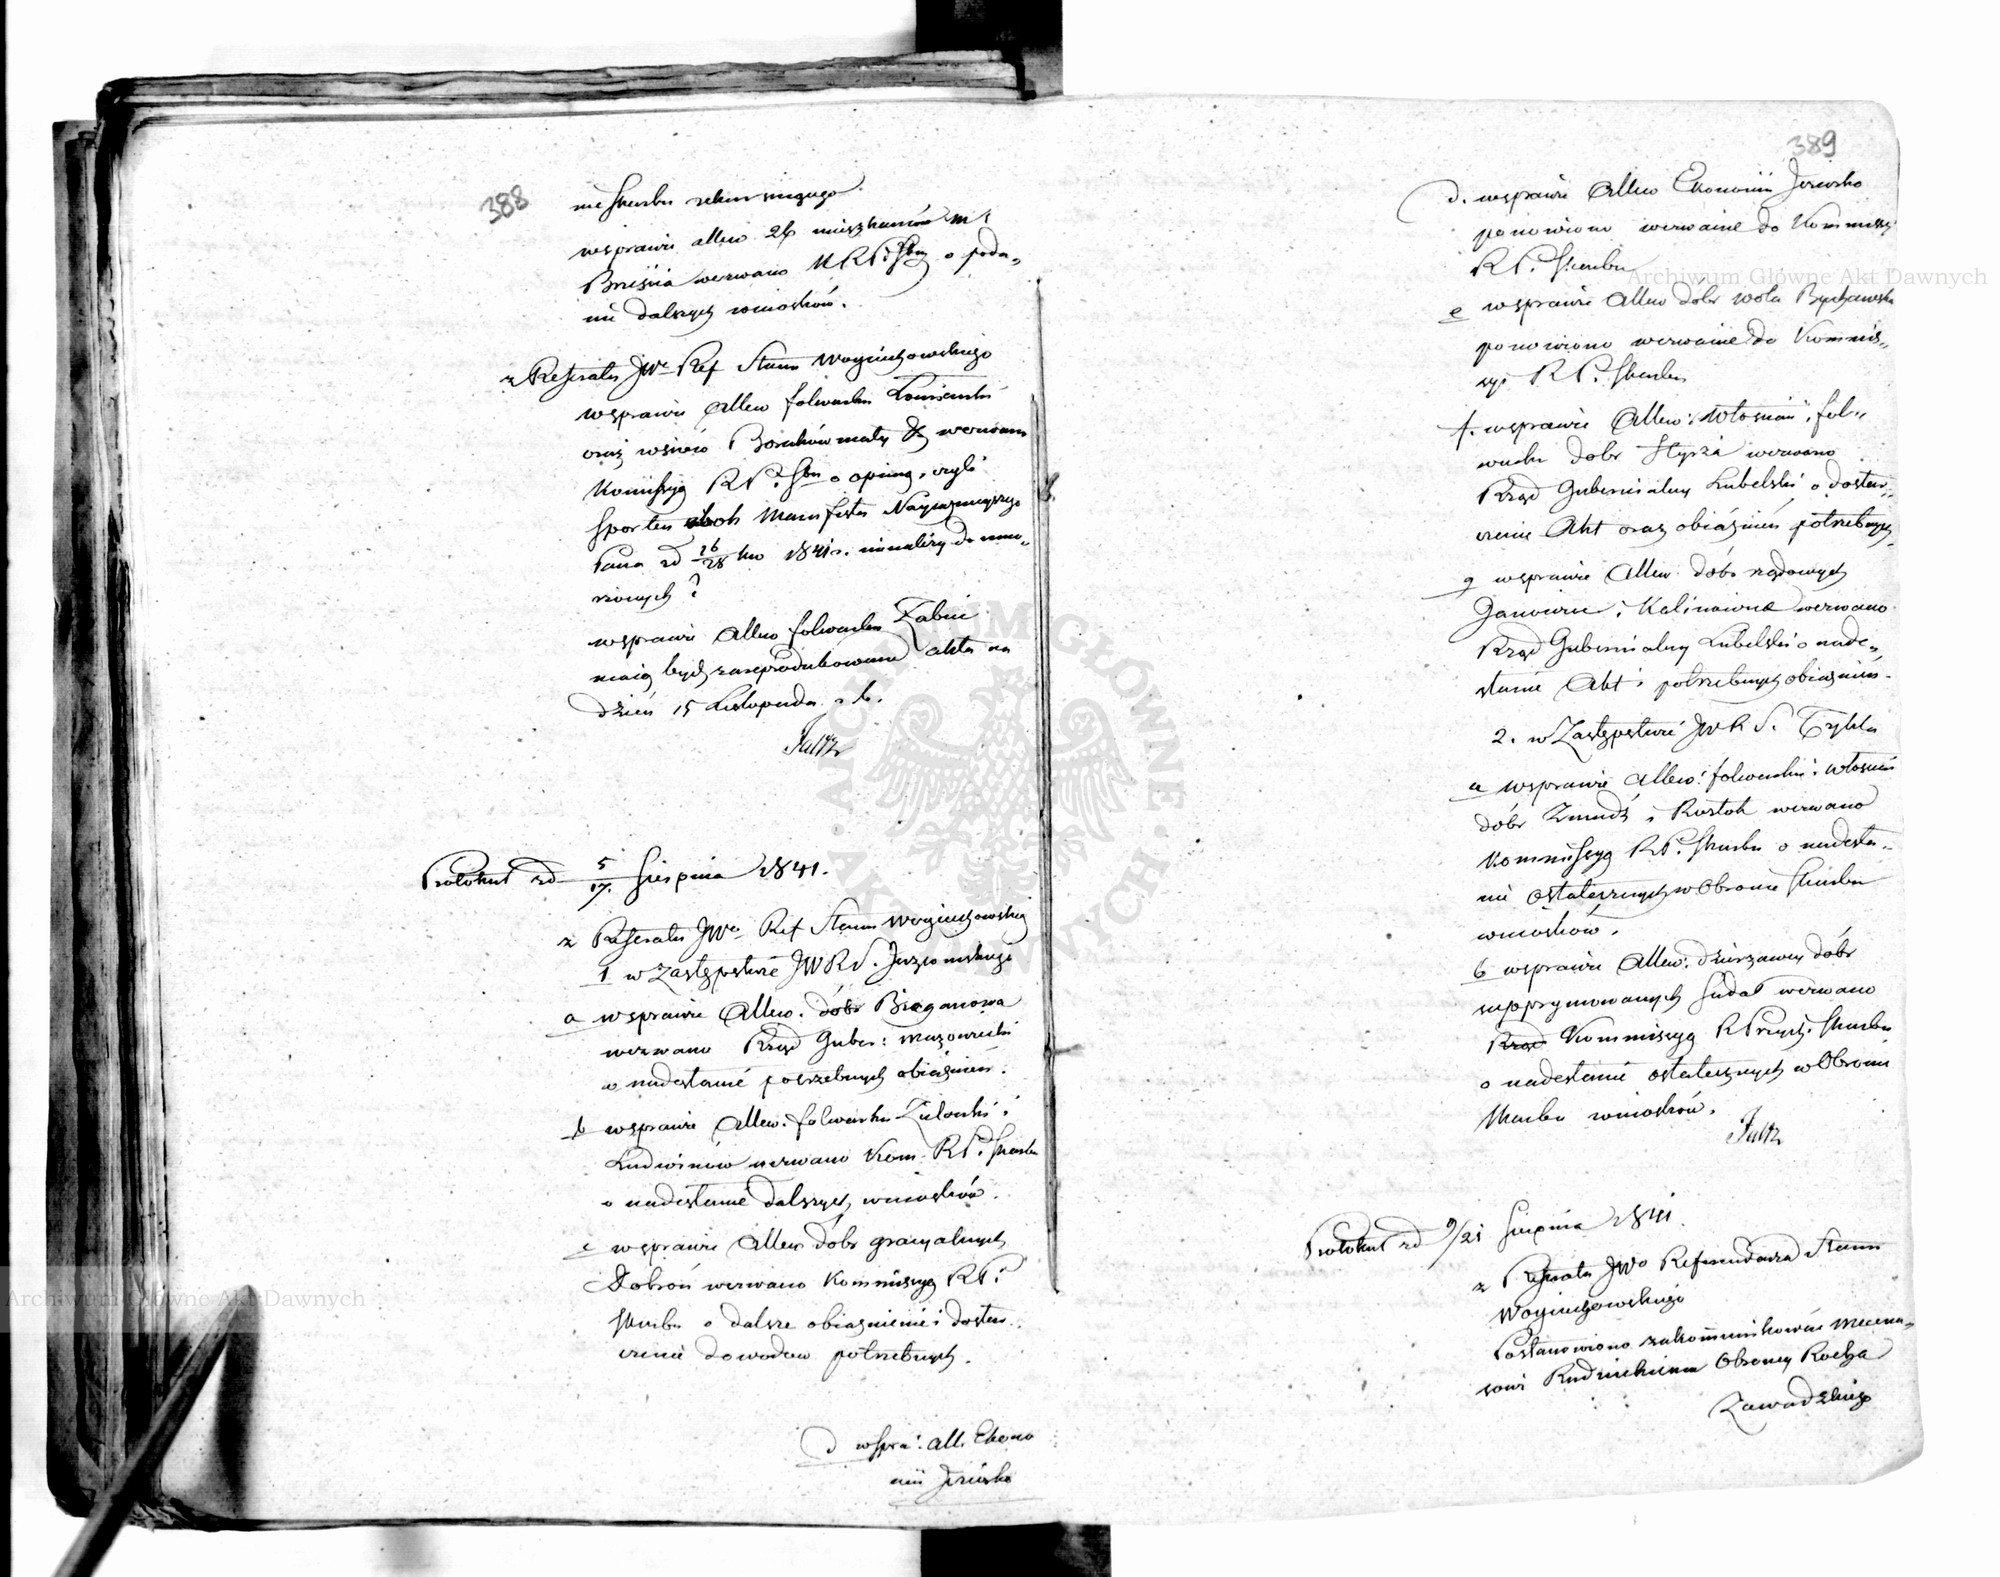 388
nie Skarbu rekursuiącego.
wsprawie allew 24 mieszkańców m:
Brześcia wezwano K R P: Sbu o poda„
nie dalszych wniosków.
z Referatu JWo Ref Stanu Woyciechowskiego
wsprawie Allew folwarku
oraz wsiów wezwano
Kommissyą R P: Sbu o opinią, czyli
spor ten obok Manifestu Nayiaśnieyszego
Pana zd 16/28 1841 r. nienależy do umo„
rzonych?
wsprawie Allew folwarku Żabin
maią bydź zareprodukowane akta na
dzień 15 Listopada r. b.
Protokuł zd 5/17. Sierpnia 1841.
z Referatu JWo Ref Stanu Woyciechowskiego
1 w Zastępstwie JWRS.
a wsprawie Allew. dóbr Bieganowa
wezwano Rząd Guber: Mazowiecki
o nadesłanie potrzebnych obiaśnień.
b wsprawie Allew. folwarku i
Ludwinów wezwano Kom. R P: Skarbu
o nadesłanie dalszych wniosków.
c wsprawie Allew dóbr gracyalnych
Dobroń wezwano Kommissyą R P:
Skarbu o dalsze obiaśnienie i dostar„
czenie dowodów potrzebnych.
d wspra: all. Ekono
mii Jeziorko
389
d. wsprawie Allew Ekonomii Jeziorko
ponowiono wezwanie do Kommissyi
R P. Skarbu
e wsprawie Allew dóbr Wola Bychawska
ponowiono wezwanie do Kommis„
syi R P. Skarbu
f. wsprawie Allew: Włościan i fol„
warku dobr Stęża wezwano
Rząd Gubernialny Lubelski o dostar„
czenie Akt oraz obiaśnień potrzebnych.
g wsprawie Allew. dóbr rządowych
Janowice i Kalinówka wezwano
Rząd Gubernialny Lubelski o nade„
słanie Akt i potrzebnych obiaśnień.
2. w Zastępstwie JW R S. Trykla
a wsprawie Allew: folwarku i włościan
dóbr Zmudź i Rostok wezwano
Kommissyą R P. Skarbu o nadesła„
nie ostatecznych w Obronie Skarbu
wniosków.
b wsprawie Allew: dzierzawcy dóbr
supprymowanych Sudał wezwano
Rząd Kommissyą R Przych. Skarbu
o nadesłanie ostatecznych w Obronie
Skarbu wniosków.
Protokuł zd 9/21 Sierpnia 1841.
z Referatu JWo Referendarza Stanu
Woyciechowskiego
Postanowiono zakommunikować Mecena„
sowi Rudnickiemu Obrońcy Rocha
Zawadzkiego
Archiwum Główne Akt Dawnych
Archiwum Główne Akt Dawnych
ARCHIWUM GŁÓWNE AKT DAWNYCH